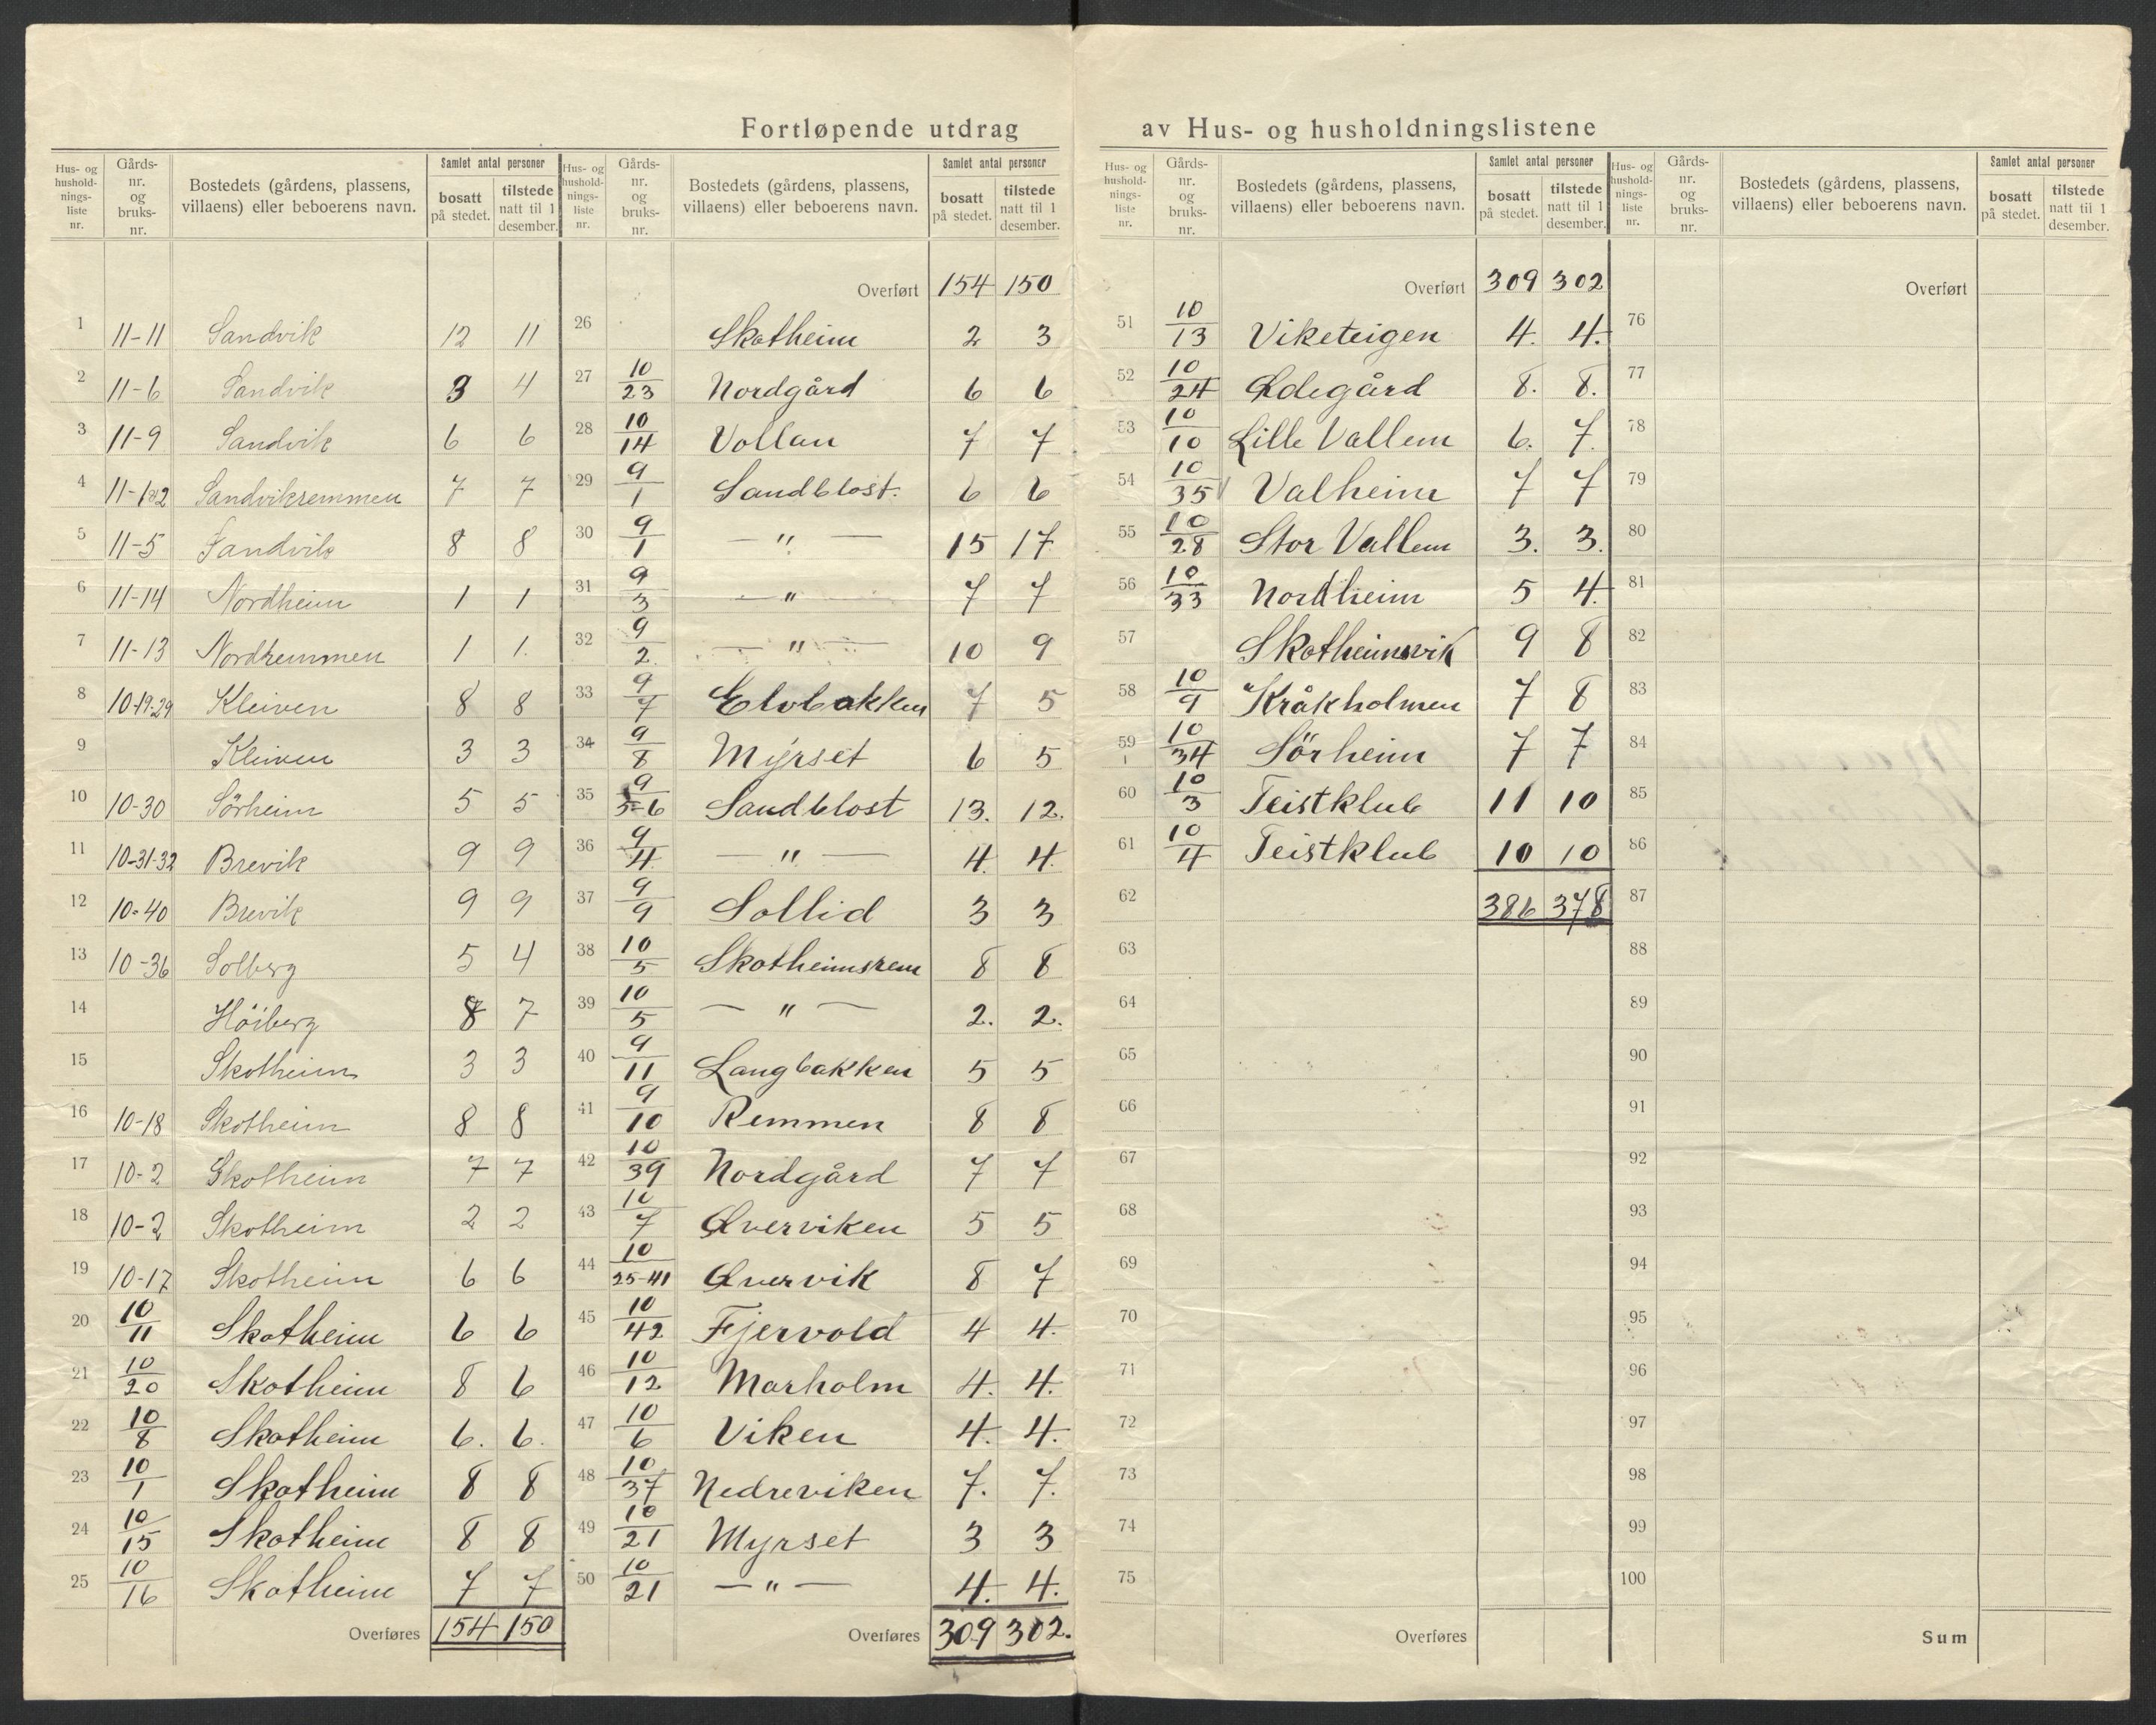 Fortløpende utdrag av Hus- og husholdningslistene
Hus- og hushold-nings-liste nr. | Gårds-nr. og bruks-nr. | Bostedets (gårdens, plassens, villaens) eller beboerens navn. | Samlet antal personer bosatt på stedet. | tilstede natt til 1 desember.
1 11-11 Sandvik 12 11
2 11-6 Sandvik 3 4
3 11-9 Sandvik 6 6
4 11-1 Sandvikremmen 7 7
5 11-5 Sandvik 8 8
6 11-14 Nordheim 1 1
7 11-13 Nordremmen 1 1.
8 10-19-29 Kleiven 8 8
9 Kleiven 3 3
10 10-30 Sörheim 5 5
11 10-31-32 Brevik 9 9
12 10-40 Brevik 9 9
13 10-36 Solberg 5 4
14 Höiberg 8 7
15 Skotheim 3 3
16 10-18 Skotheim 8 8
17 10-2 Skotheim 7 7
18 10-2 Skotheim 2 2
19 10-17 Skotheim 6 6
20 10/11 Skotheim 6 6
21 10/20 Skotheim 8 6
22 10/8 Skotheim 6. 6.
23 10/1 Skotheim 8 8
24 10/15 Skotheim 8 8
25 10/16 Skotheim 7 7
Overføres 154 150
Hus- og hushold-nings-liste nr. | Gårds-nr. og bruks-nr. | Bostedets (gårdens, plassens, villaens) eller beboerens navn. | Samlet antal personer bosatt på stedet. | tilstede natt til 1 desember.
Overført 154 150
26 Skotheim 2 3
27 10/23 Nordgård 6 6
28 10/14 Vollan 7 7
29 9/1 Sandblost. 6 6
30 9/1 — " — 15 17
31 9/3 — " — 7 7
32 9/2. — " — 10 9
33 9/7 Elvbakken 7 5
34 9/8 Myrset 6 5
35 9/5-6 Sandblost 13. 12.
36 9/4 — " — 4. 4.
37 9/9 Sollid 3 3
38 10/5 Skotheimsrem 8 8
39 10/5 — " — 2. 2.
40 9/11 Langbakken 5 5
41 9/10 Remmen 8 8
42 10/39 Nordgård 7 7
43 10/7 Øverviken 5 5
44 10/25-41 Øvervik 8 7
45 10/42 Fjervold 4 4.
46 10/12 Marholm 4. 4.
47 10/6 Viken 4. 4.
48 10/37 Nedreviken 7. 7.
49 10/21 Myrset 3 3
50 10/21 — " — 4. 4.
Overføres 309 302.
Hus- og hushold-nings-liste nr. | Gårds-nr. og bruks-nr. | Bostedets (gårdens, plassens, villaens) eller beboerens navn. | Samlet antal personer bosatt på stedet. | tilstede natt til 1 desember.
Overført 309 302
51 10/13 Viketeigen 4. 4.
52 10/24 Ødegård 8. 8.
53 10/10 Lille Vallem 6. 7.
54 10/35 Valheim 7 7
55 10/28 Stor Vallem 3. 3.
56 10/33 Nordheim 5 4.
57 Skotheimsvik 9 8
58 10/9 Kråkholmen 7 8
59 10/34 Sörheim 7 7
60 10/3 Teistklub 11 10
61 10/4 Teistklub 10 10
62 386 378
63
64
65
66
67
68
69
70
71
72
73
74
75
Overføres
Hus- og hushold-nings-liste nr. | Gårds-nr. og bruks-nr. | Bostedets (gårdens, plassens, villaens) eller beboerens navn. | Samlet antal personer bosatt på stedet. | tilstede natt til 1 desember.
Overført
76
77
78
79
80
81
82
83
84
85
86
87
88
89
90
91
92
93
94
95
96
97
98
99
100
Sum